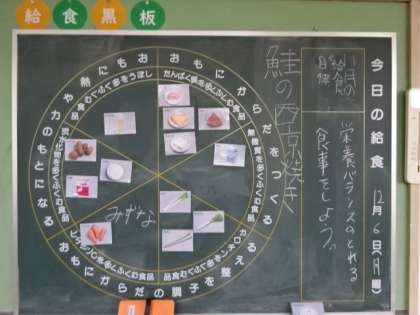 給食黒板
今日の給食
12月6日(月曜)
栄養バランスのとれる
食事をしよう。
鮭の西京焼き
おもにからだをつくる
おもにからだの調子を整える
おもに熱や力のもとになる
たんぱく質を多くふくむ食品
無機質を多くふくむ食品
カロテンを多くふくむ食品
ビタミンCを多くふくむ食品
炭水化物を多くふくむ食品
しぼうを多くふくむ食品
みずな